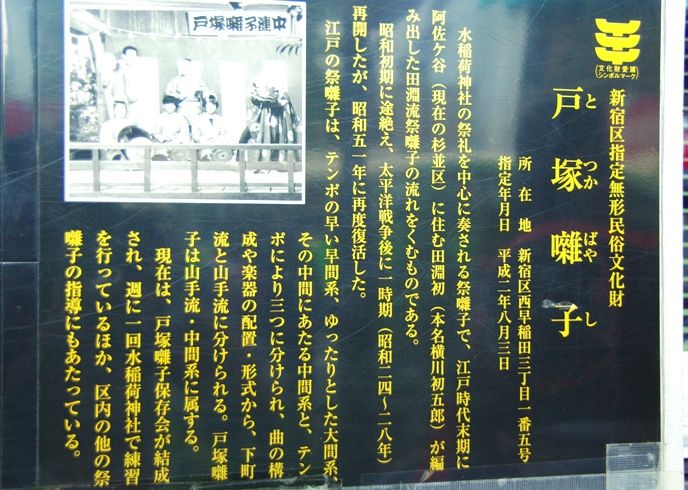 文化財愛護
シンボルマーク
新宿区指定無形民俗文化財
とつかばやし
戸塚囃子
所在地 新宿区西早稲田三丁目一番五号
指定年月日 平成二年八月三日
水稲荷神社の祭礼を中心に奏される祭囃子で、江戸時代末期に
阿佐ケ谷(現在の杉並区)に住む田淵初(本名横川初五郎)が編
み出した田淵流祭囃子の流れをくむものである。
昭和初期に途絶え、太平洋戦争後に一時期(昭和二四〜二八年)
再開したが、昭和五一年に再度復活した。
江戸の祭囃子は、テンポの早い早間系、ゆったりとした大間系、
その中間にあたる中間系と、テン
ポにより三つに分けられ、曲の構
成や楽器の配置・形式から、下町
流と山手流に分けられる。戸塚囃
子は山手流・中間系に属する。
現在は、戸塚囃子保存会が結成
され、週に一回水稲荷神社で練習
を行っているほか、区内の他の祭
囃子の指導にもあたっている。
中連子囃塚戸